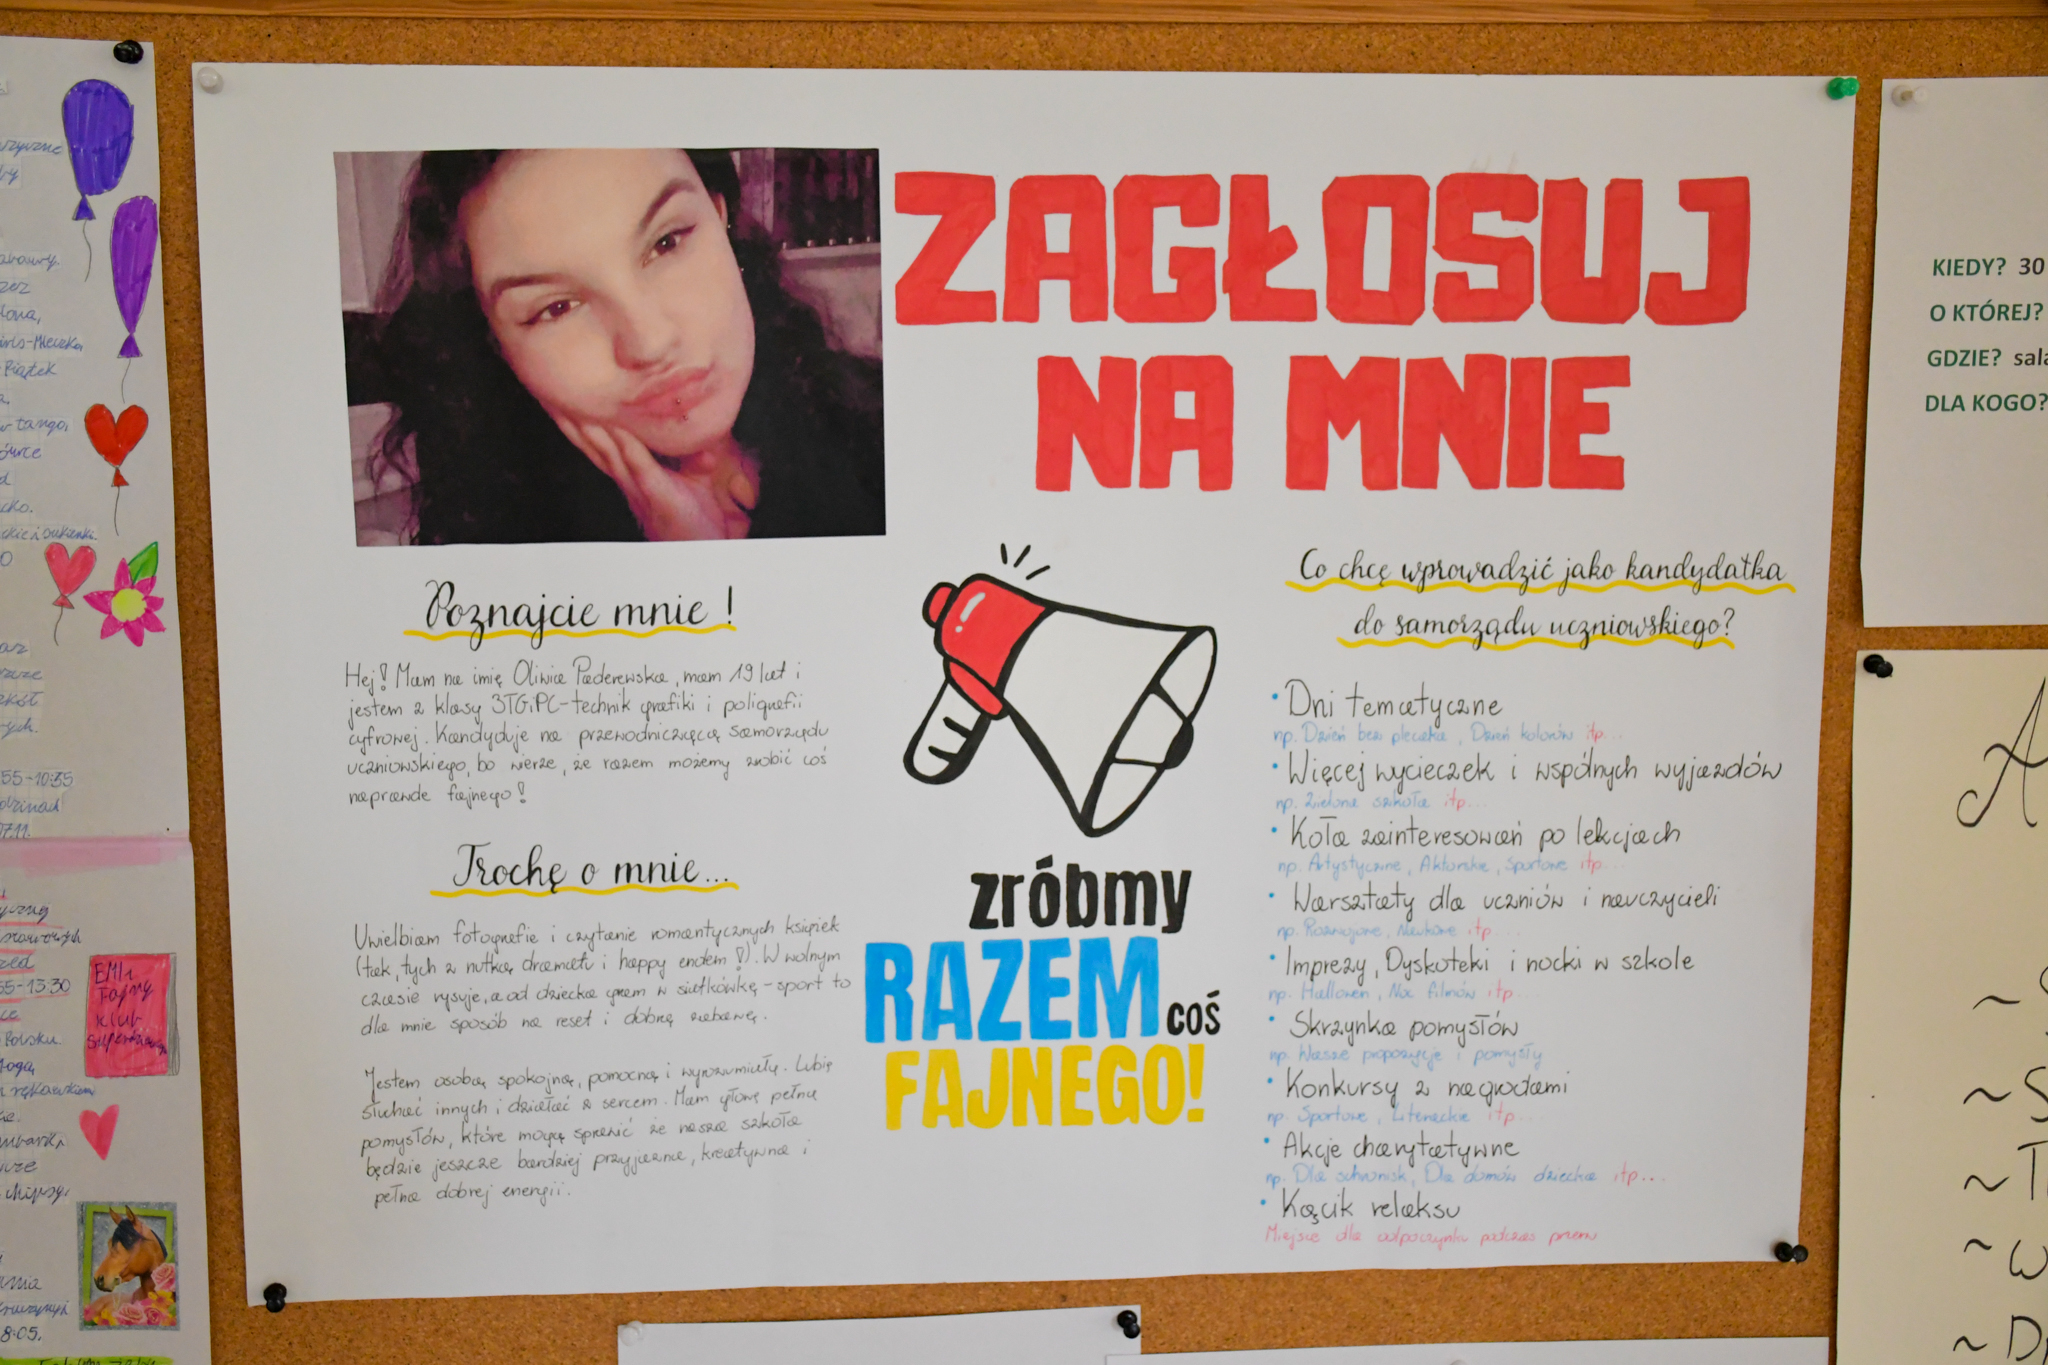 ZAGŁOSUJ
NA MNIE
Poznajcie mnie!
Hej! Mam na imię Oliwia Paderewska, mam 19 lat i
jestem z klasy 3TGiPC-technik grafiki i poligrafii
cyfrowej. Kandyduje na przewodniczącą samorządu
uczniowskiego, bo wierzę, że razem możemy zrobić coś
naprawdę fajnego!
Trochę o mnie...
Uwielbiam fotografie i czytanie romantycznych książek
(tak, tych z nutką dramatu i happy endem!). W wolnym
czasie rysuje, a od dziecka gram w siatkówkę - sport to
dla mnie sposób na reset i dobrą zabawę.
Jestem osobą spokojną, pomocną i wyrozumiałą. Lubię
słuchać innych i działać z sercem. Mam głowę pełną
pomysłów, które mogą sprawić że nasza szkoła
będzie jeszcze bardziej przyjazna, kreatywna i
pełna dobrej energii.
zróbmy
RAZEM coś
FAJNEGO!
Co chcę wprowadzić jako kandydatka
do samorządu uczniowskiego?
• Dni tematyczne
np. Dzień bez plecaka, Dzień kolorów itp...
• Więcej wycieczek i wspólnych wyjazdów
np. Zielona szkoła itp...
• Koła zainteresowań po lekcjach
np. Artystyczne, Aktorskie, Sportowe itp...
• Warsztaty dla uczniów i nauczycieli
np. Rozwojowe, Naukowe itp...
• Imprezy, Dyskoteki i nocki w szkole
np. Hallowen, Noc filmów itp...
• Skrzynka pomysłów
np. Wasze propozycje i pomysły
• Konkursy z nagrodami
np. Sportowe, Literackie itp...
• Akcje charytatywne
np. Dla schronisk, Dla domów dziecka itp...
• Kącik relaksu
Miejsce dla odpoczynku podczas przerw
KIEDY? 30
O KTÓREJ?
GDZIE?
DLA KOGO?
Piątek
tango,
55-10:35
17.11.
55-13:30
Polsku.
EMi
Fajny
klub
8:05.